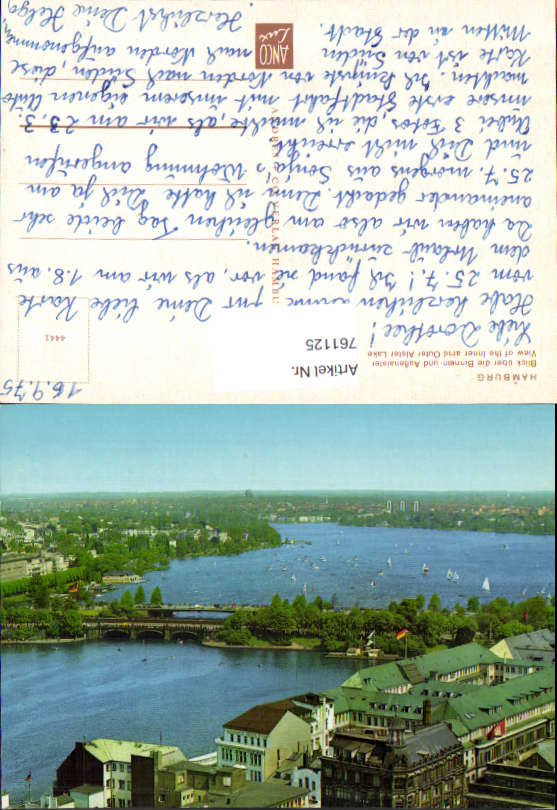 HAMBURG
Blick über die Binnen- und Außenalster
View of the Inner and Outer Alster Lake
16.9.75
Artikel Nr.
761125
4441
Liebe Dorothee!
Habe herzlichen Dank für Deine liebe Karte
vom 25.7.! Ich fand sie vor, als wir am 1.8. aus
dem Urlaub zurückkamen.
Da haben wir also am gleichen Tag beide sehr
aneinander gedacht. Denn ich hatte Dich ja am
25.7. morgens aus Sonja's Wohnung angerufen
und Dich nicht erreicht.
Anbei 3 Fotos, die ich machte, als wir am 23.3.
unsere erste Stadtfahrt mit unserem eigenen Auto
machten. Ich knipste von Norden nach Süden, diese
Karte ist von Süden nach Norden aufgenommen,
Mitten in der Stadt.
Herzlichst Deine Helga
ANCO
Lux